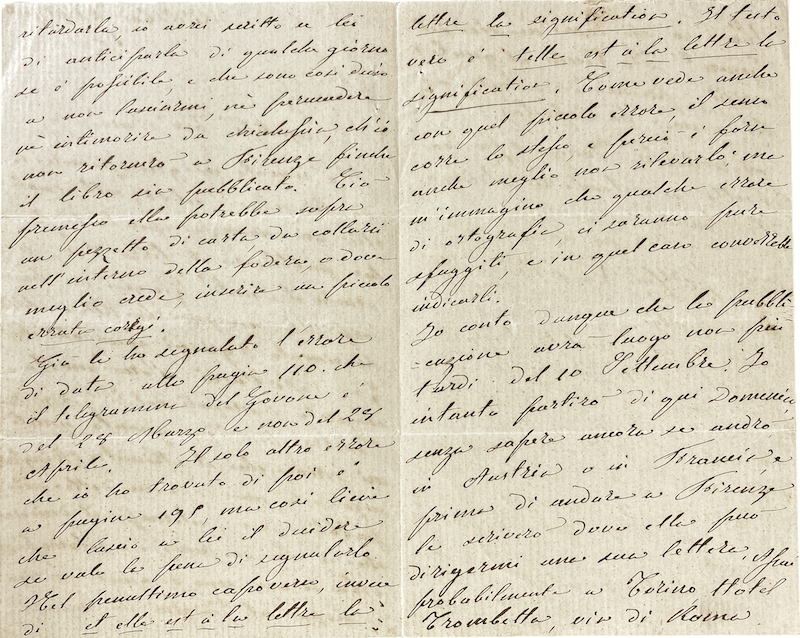 ritardarla, io avrei scritto a lei
di anticiparla di qualche giorno
se è possibile, e che sono così deciso
a non lasciarmi, nè persuadere
nè intimorire da chichessia, ch'io
non ritornerò a Firenze finchè
il libro sia pubblicato. Ciò
premesso ella potrebbe sopra
un pezzetto di carta da collarsi
nell'interno della fodera, o dove
meglio crede, inserire un piccolo
errata corrige.
Già le ho segnalato l'errore
di data alla pagina 110. che
il telegramma del Govone è
del 28 Marzo e non del 28
Aprile. Il solo altro errore
che io ho trovato di poi è
a pagina 195, ma così lieve
che lascio a lei il decidere
se vale la pena di segnalarlo
Nel penultimo capoverso, invece
di il elle est à la lettre la
lettre la signification. Il testo
vero è telle est à la lettre la
signification. Come vede anche
con quel piccolo errore, il senso
corre lo stesso, e perciò è forse
anche meglio non rilevarlo; ma
m'immagino che qualche errore
di ortografia ci saranno pure
sfuggiti, e in quel caso converrebbe
indicarli.
Io conto dunque che la pubbli-
-cazione avrà luogo non più
tardi del 10 Settembre. Io
intanto partirò di qui Domenica,
senza sapere ancora se andrò
in Austria o in Francia, e
prima di andare a Firenze
le scriverò dove ella può
dirigermi una sua lettera,
probabilmente a Torino Hotel
Trombetta, via di Roma.